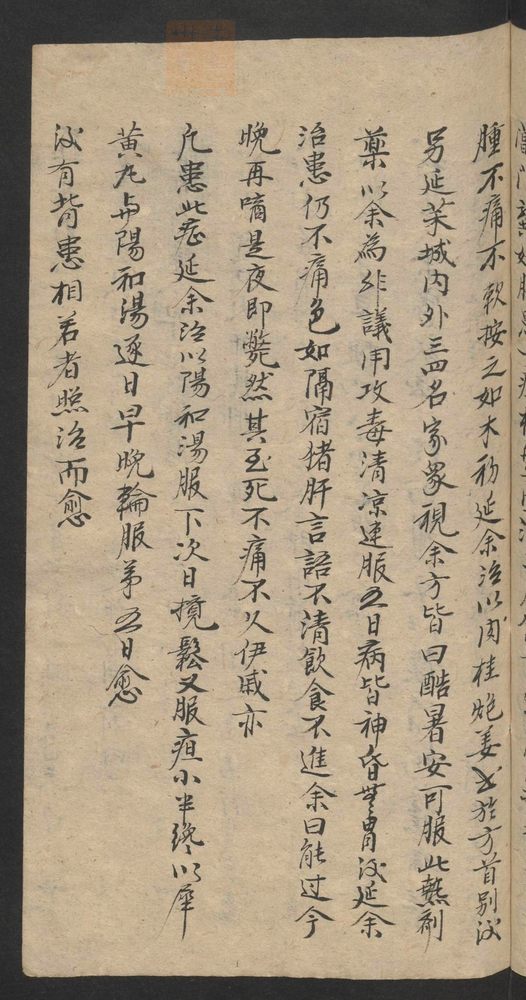 腫不痛不軟按之如木初延余治以肉桂炮姜書於方首別後
另延芙城内外三四名家衆視余方皆曰酷暑安可服此熱剤
藥以余為非議用攻毒清凉連服五日病皆神昏無胃後延余
治患仍不痛色如隔宿猪肝言語不清飲食不進余曰能过今
晚再商是夜即斃然其至死不痛不久伊戚亦
凡患此症延余治以陽和湯服下次日覺鬆又服疽小半纔以犀
黄丸与陽和湯逐日早晚輪服第五日愈
後有背患相若者照治而愈